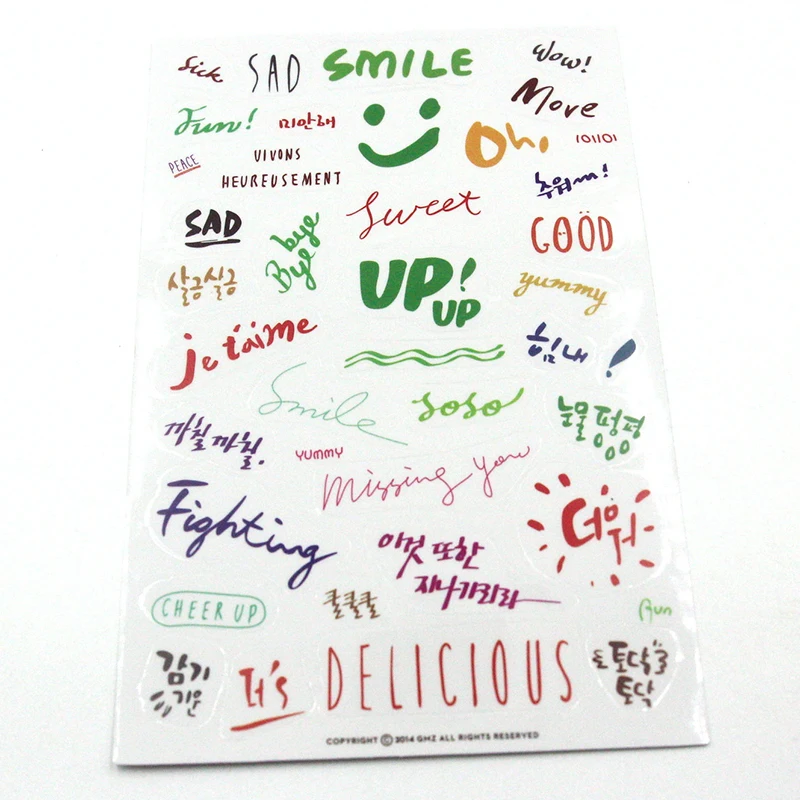 Sick
SAD
SMILE
Wow!
Move
Fun!
미안해
Oh,
101101
PEACE
VIVONS
HEUREUSEMENT
추워~!
Sweet
SAD
bye
Bye
GOOD
살금살금
UP!
UP
yummy
je t'aime
힘내!
Smile
SOSO
눈물 펑펑
까칠까칠.
YUMMY
missing you
Fighting
더워
이것 또한
지나가리라
CHEER UP
쿨쿨쿨
Run
감기
기운
It's
DELICIOUS
토닥
토닥
COPYRIGHT © 2014 GMZ ALL RIGHTS RESERVED